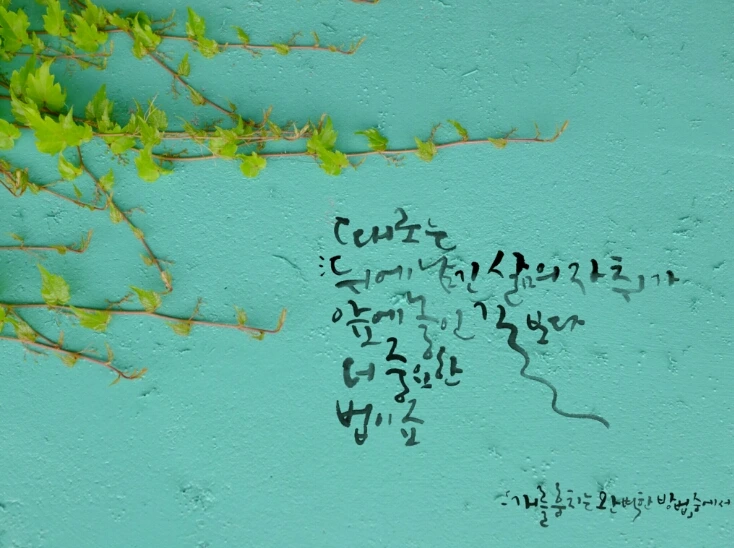 때로는
뒤에 남긴 삶의 자취가
앞에 놓인 길보다
더 중요한
법이죠
-개를 훔치는 완벽한 방법 중에서